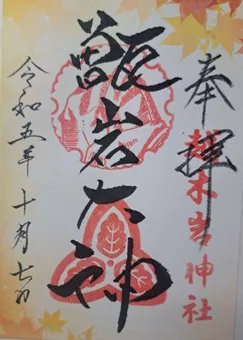 奉拝
木岩神社
甑岩大神
令和五年十月七日